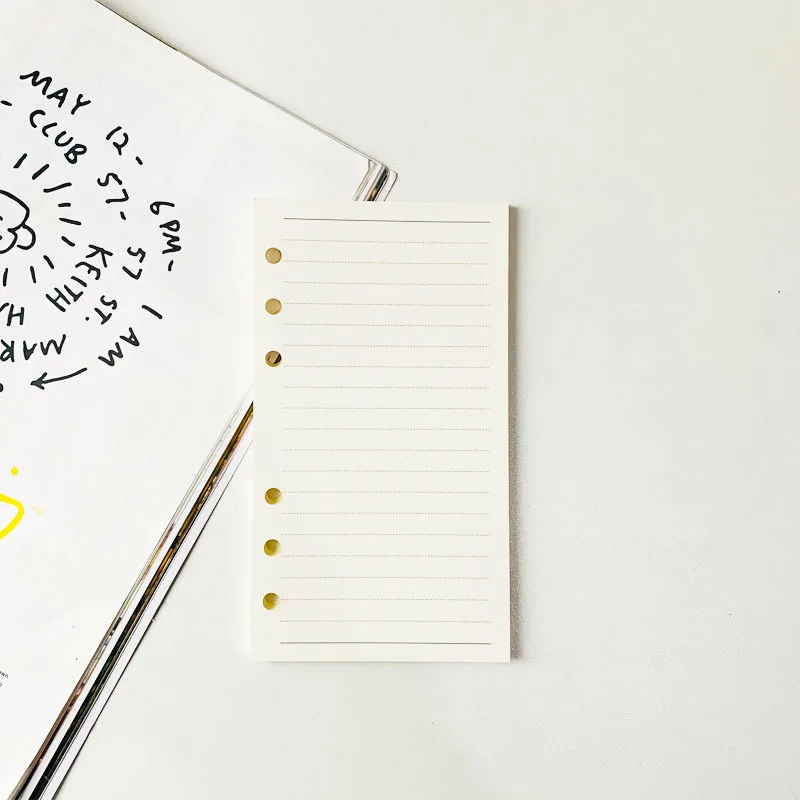 MAY 12- 6PM- I AM
- CLUB 57- 57 ST. MAR
KEITH HA